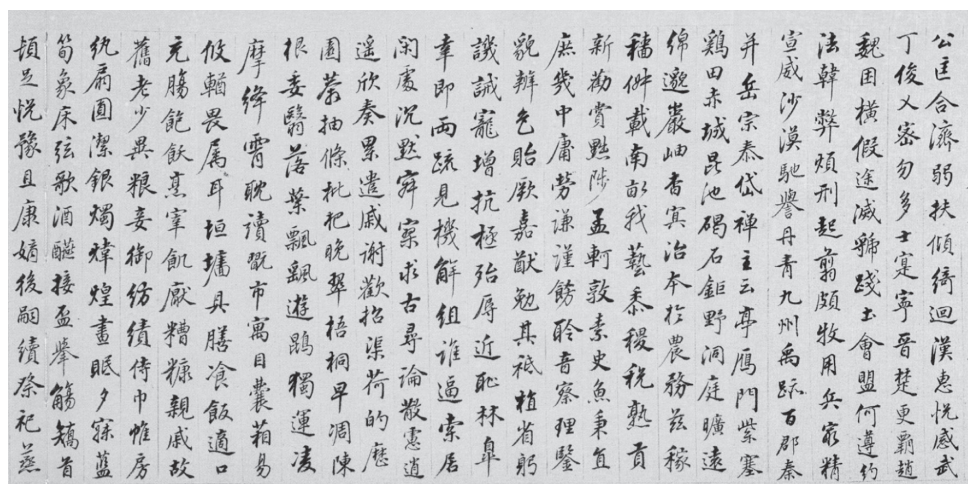 公匡合濟弱扶傾綺迴漢惠悅感武
丁俊乂密勿多士寔寧晉楚更霸趙
魏困橫假途滅虢踐土會盟何遵約
法韓弊煩刑起翦頗牧用兵最精
宣威沙漠馳譽丹青九州禹跡百郡秦
并岳宗泰岱禪主云亭雁門紫塞
鷄田赤城昆池碣石鉅野洞庭曠遠
綿邈巖岫杳冥治本於農務茲稼
穡俶載南畝我藝黍稷稅熟貢
新勸賞黜陟孟軻敦素史魚秉直
庶幾中庸勞謙謹飭聆音察理鑒
貌辨色貽厥嘉猷勉其祗植省躬
譏誡寵增抗極殆辱近恥林皋
幸即兩疏見機解組誰逼索居
閑處沉默寂寥求古尋論散慮逍
遙欣奏累遣慼謝歡招渠荷的歷
園莽抽條枇杷晚翠梧桐早凋陳
根委翳落葉飄颻遊鵾獨運凌
摩絳霄耽讀翫市寓目囊箱易
攸輶畏屬耳垣墻具膳飡飯適口
充腸飽飫烹宰飢厭糟糠親戚故
舊老少異粮妾御紡績侍巾帷房
紈扇圓潔銀燭煒煌晝眠夕寐藍
筍象床弦歌酒醼接盃舉觴矯首
頓足悅豫且康嫡後嗣續祭祀蒸